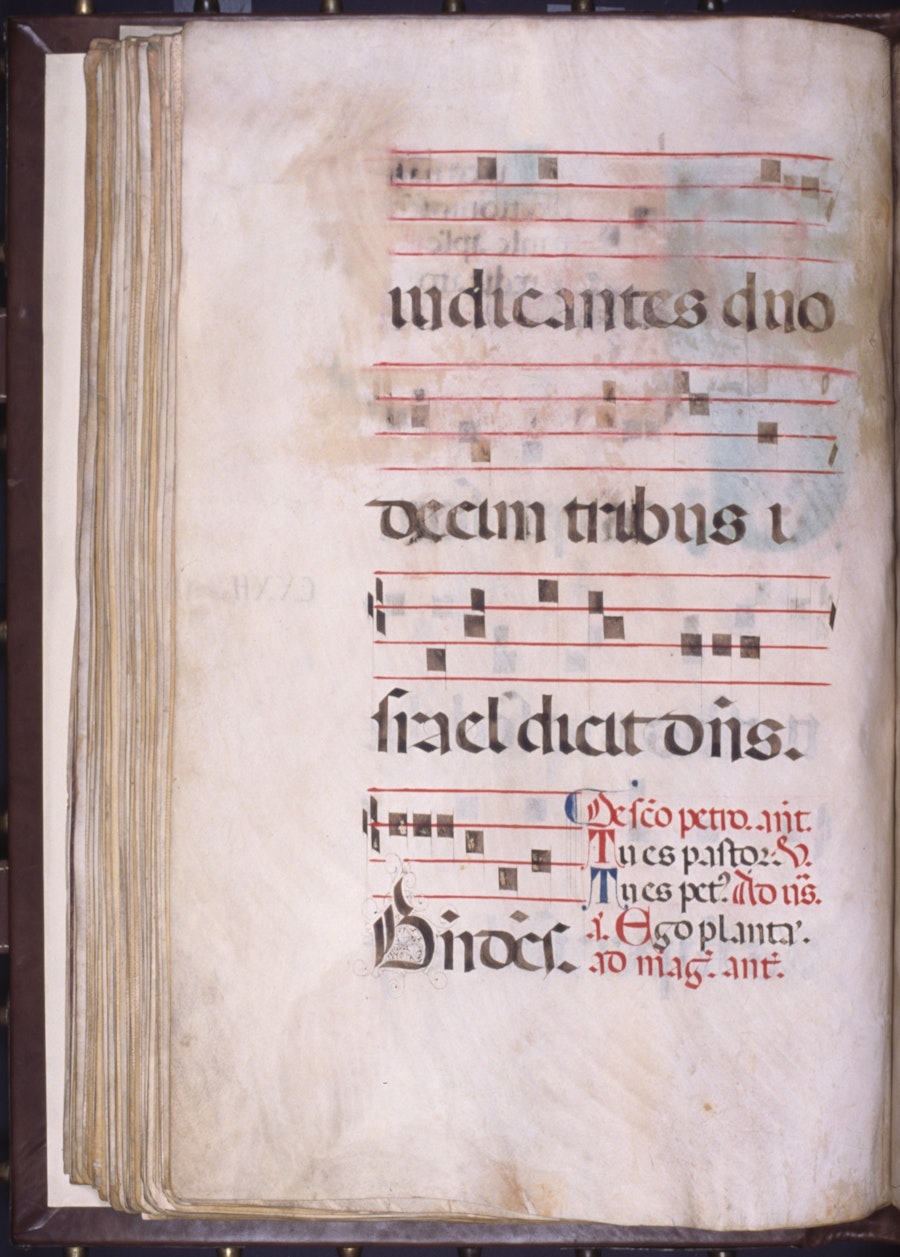 iudicantes duo
decim tribus i
srael dicit dn̄s.
Bn̄dc̄s.
De sc̄o petro. añt.
Tu es pastor. V.
Tu es pet᷒. Ad ūs.
a. Ego planta᷒.
ad mag̃. ant̄.